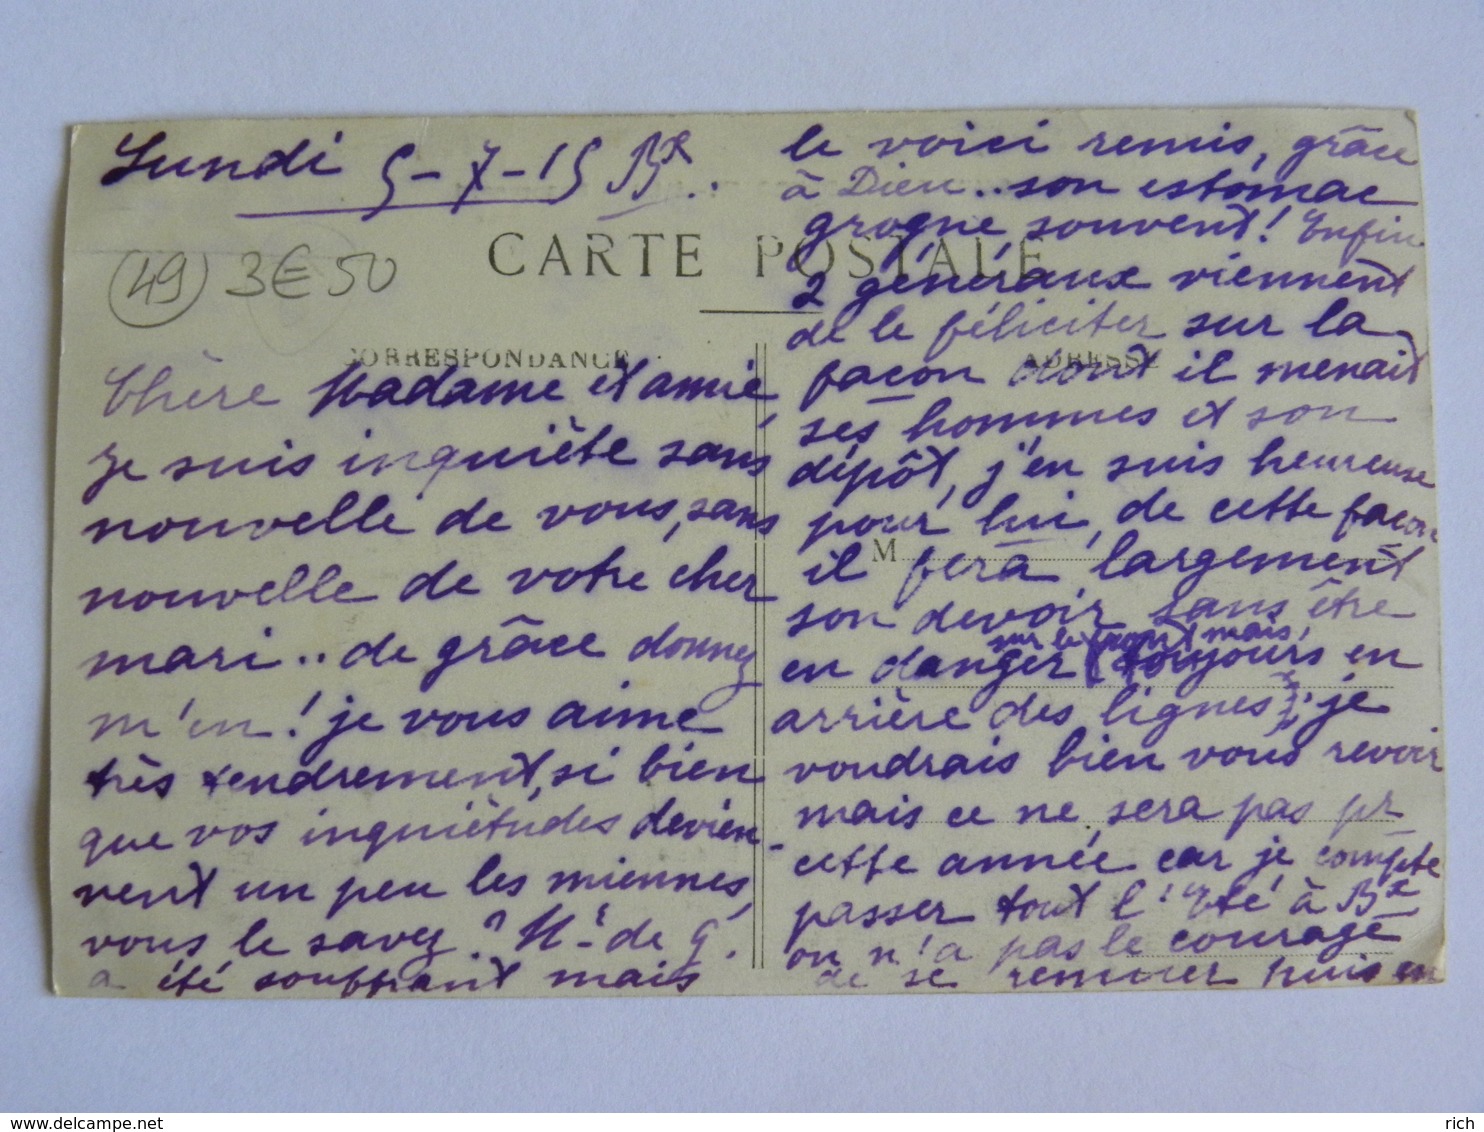 Lundi 5-7-15 Bx.
(49) 3€50
CARTE POSTALE
CORRESPONDANCE
ADRESSE
M
Chère Madame et amie,
Je suis inquiète sans
nouvelle de vous, sans
nouvelle de votre cher
mari .. de grâce donnez
m'en ! je vous aime
très tendrement, si bien
que vos inquiétudes devien-
nent un peu les miennes,
vous le savez ? Mr de G.
a été souffrant mais
le voici remis, grâce
à Dieu .. son estomac
grogne souvent ! Enfin
2 généraux viennent
de le féliciter sur la
façon dont il menait
ses hommes et son
dépôt, j'en suis heureuse
pour lui, de cette façon
il fera largement
son devoir sans être
sur le front mais,
en danger (toujours en
arrière des lignes) ; je
voudrais bien vous revoir
mais ce ne sera pas pr
cette année car je compte
passer tout l'Eté à Bx
on n'a pas le courage
de se remuer puis en
rich
www.delcampe.net